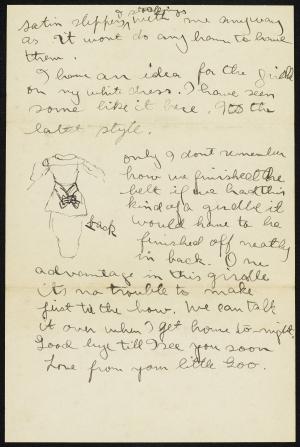 & stockings
satin slippers, with me anyway
as it wont do any harm to have
them.
I have an idea for the girdle
on my white dress. I have seen
some like it here. Its the
latest style.
only I don't remember
how we finished the
belt if we had this
kind of a girdle it
would have to be
finished off neatly
in back. One
back
advantage in this girdle
its no trouble to make
just tie the bow. We can talk
it over when I get home to-night.
Good bye till I see you soon
Love from your little Goo.